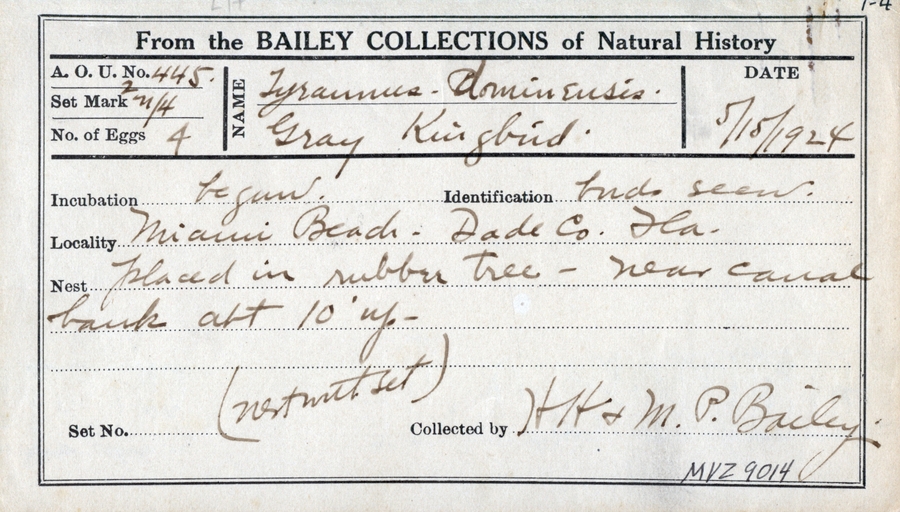 From the BAILEY COLLECTIONS of Natural History
A. O. U. No. 445.
Set Mark 2 n/4
No. of Eggs 4
NAME Tyrannus. Dominensis.
Gray Kingbird.
DATE
5/15/1924
Incubation began. Identification birds seen.
Locality Miami Beach. Dade Co. Fla.
Nest placed in rubber tree - near canal
bank abt 10' up-
(nest with set)
Set No. Collected by HH & M. P. Bailey
MVZ 9014